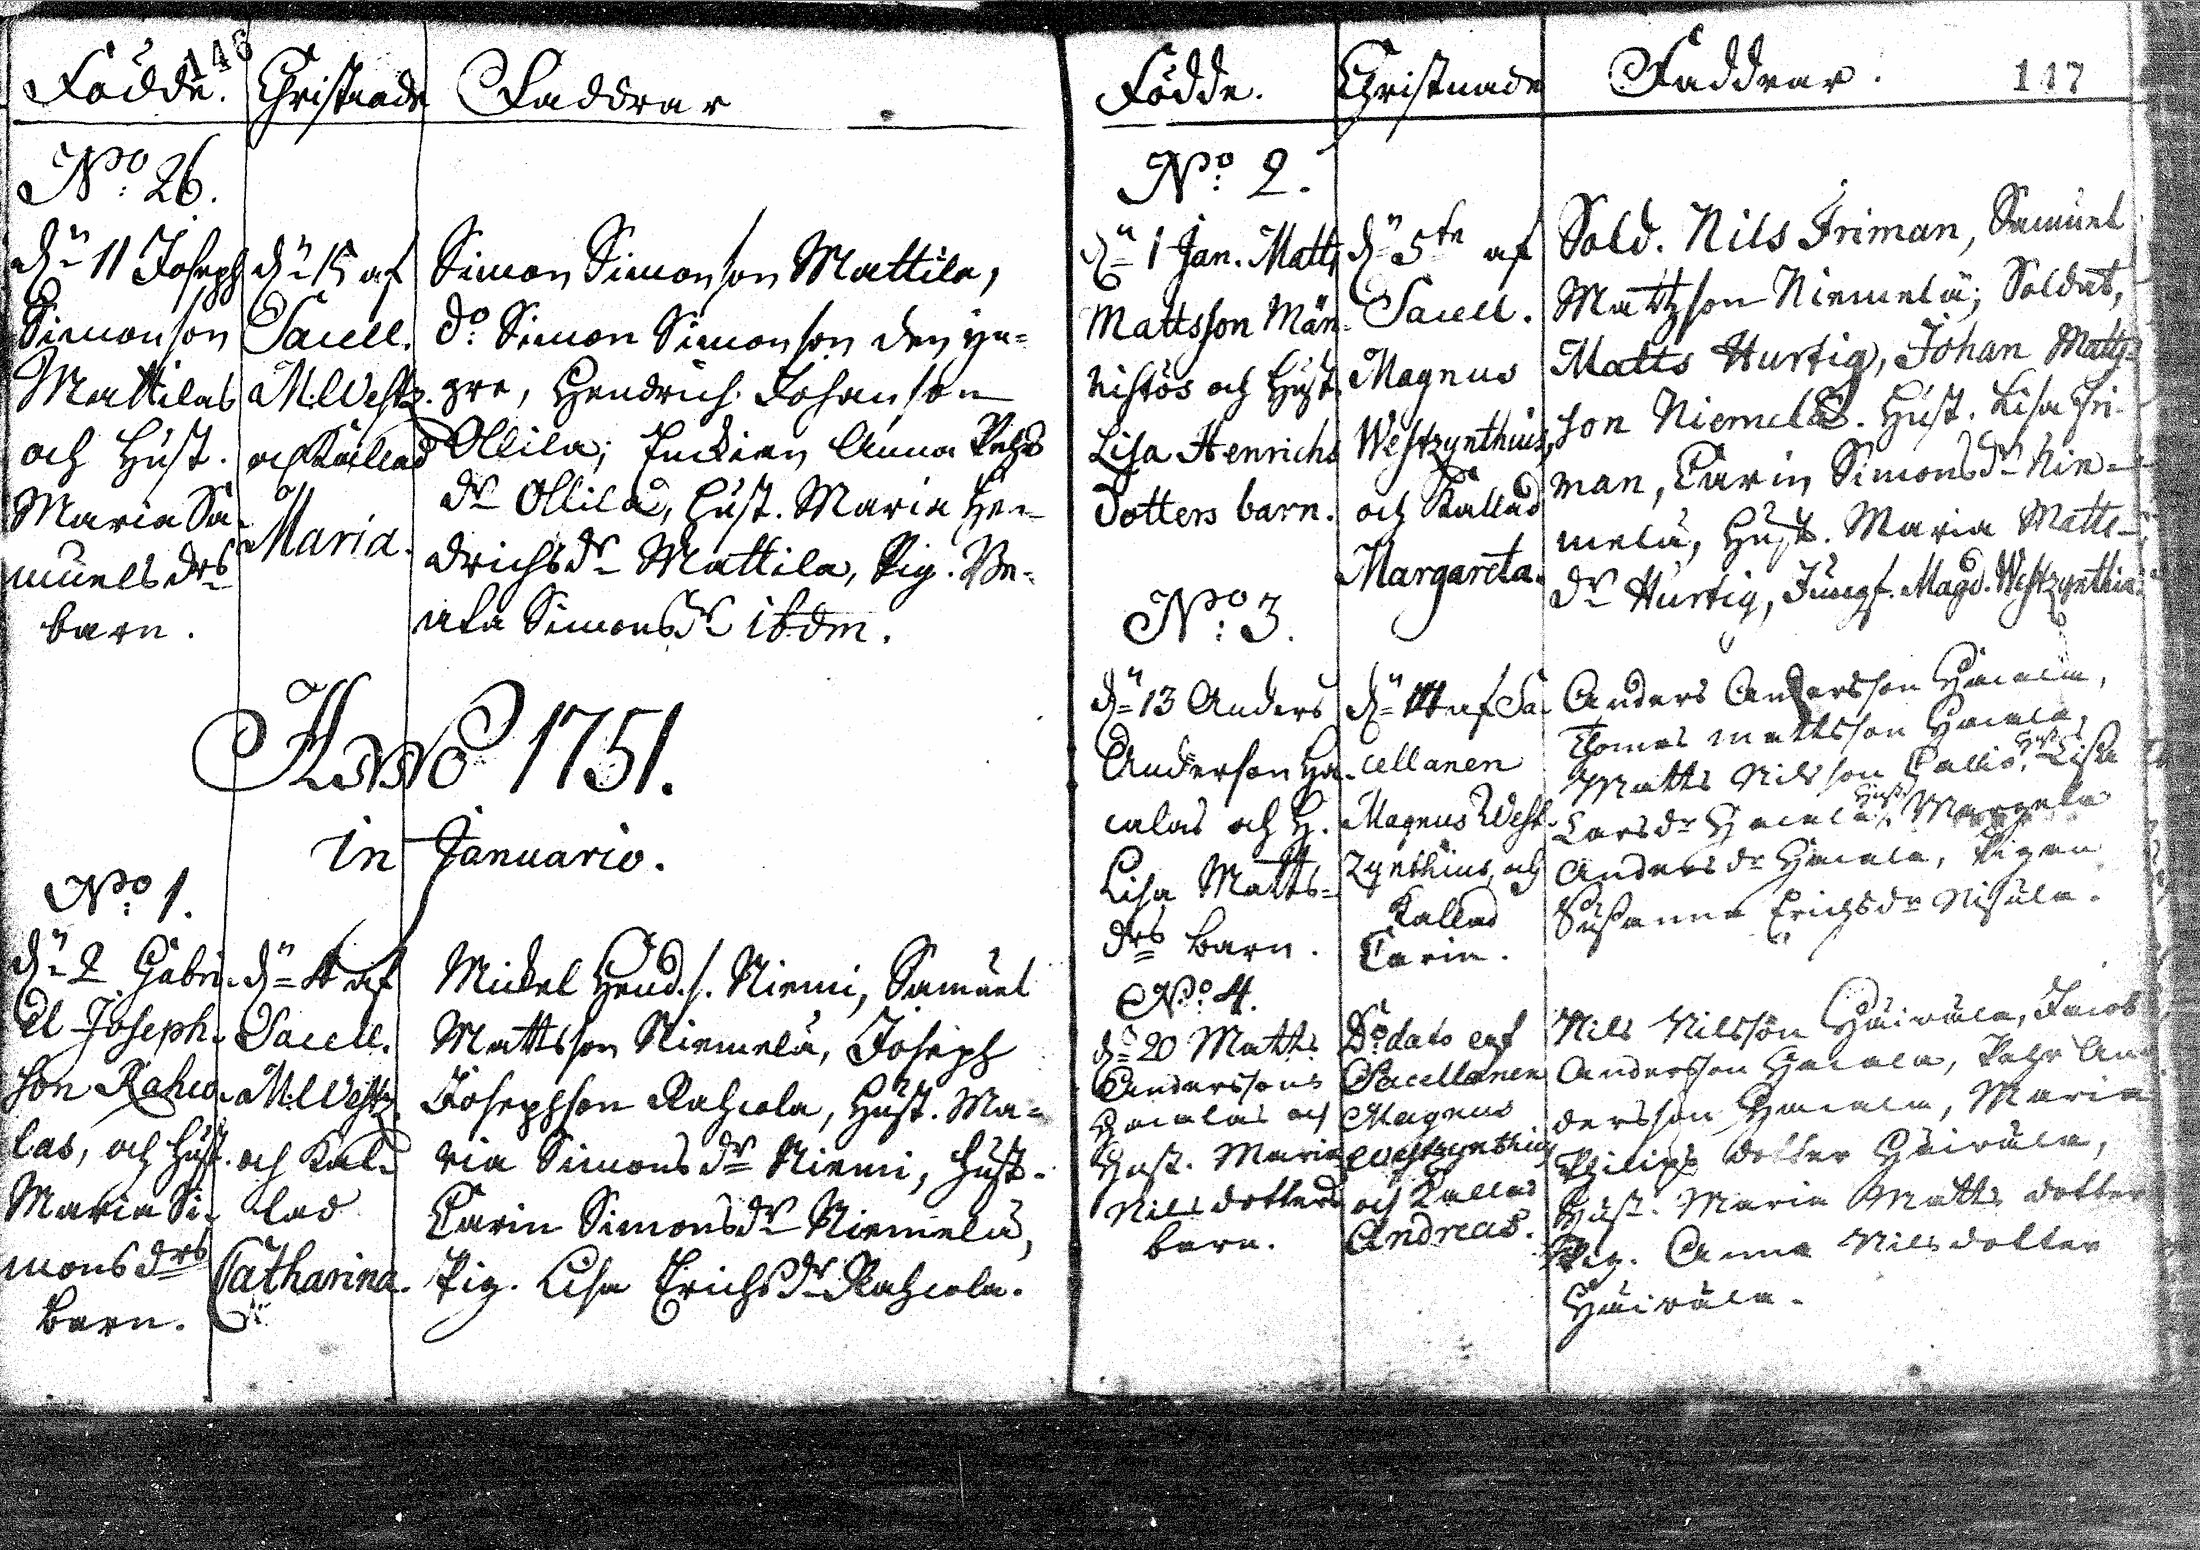 146
Födde. Christnade Faddrar
No: 26.
dn 11 Joseph
Simonson
Mattilas
och Hust.
Maria Sa-
muels drs
barn.
dn 15 af
Sacell.
M. Westz.
och Kallad
Maria.
Simon Simonson Mattila,
do Simon Simonson den yn-
gre, Hendrich Johanson
Ollila; Enckian Anna Pehrs
dr Ollila, Hust. Maria Hen-
drichs dr Mattila, Pig. Be-
ata Simons dr ibdm.
Anno 1751.
in Januario.
No: 1.
dn 2 Gabri-
el Joseph-
son Rahco-
las, och Hust.
Maria Si-
mons drs
barn.
dn 4 af
Sacell.
M. Westz.
och Kal-
lad
Catharina.
Mickel Hend. s. Niemi, Samuel
Mattsson Niemelä, Joseph
Josephson Rahcola, Hust. Ma-
ria Simons dr Niemi, Hust.
Carin Simons dr Niemelä,
Pig. Lisa Erichs dr Rahcola.
147
Födde. Christnade Faddrar.
No: 2.
dn 1 Jan. Matts
Mattsson Män-
nistös och Hust.
Lisa Henrichs
Dotters barn.
dn 5te af
Sacell.
Magnus
Westzynthius,
och Kallad
Margareta.
Sold. Nils Friman, Samuel
Mattzson Niemelä; Soldat,
Matts Hurtig, Johan Matts-
son Niemelä. Hust. Lisa Fri-
man, Carin Simons dr Nie-
melä, Hust. Maria Matts-
dr Hurtig, Jungf. Magd. Westzynthia.
No: 3.
dn 13 Anders
Anderson Ha-
calas och H.
Lisa Matts-
drs barn.
dn 14 af Sa-
cellanen
Magnus West-
zynthius, och
Kallad
Carin.
Anders Andersson Hacala,
Thomas Mattsson Hacala,
Matts Nilsson Callio, Hust. Lisa
Lars dr Hacala, Hust. Margeta
Anders dr Hacala, Pigan
Susanna Erichs dr Nisula.
No: 4.
dn 20 Matts
Anderssons
Hacalas och
Hust. Maria
Nils dotters
barn.
Do dato af
Sacellanen
Magnus
Westzynthius
och Kallad
Andreas.
Nils Nilsson Häivälä, Jacob
Andersson Hacala, Pehr An-
dersson Hacala, Maria
Philips dotter Häivälä,
Hust. Maria Matts dotter
Pig. Anna Nils dotter
Häivälä.